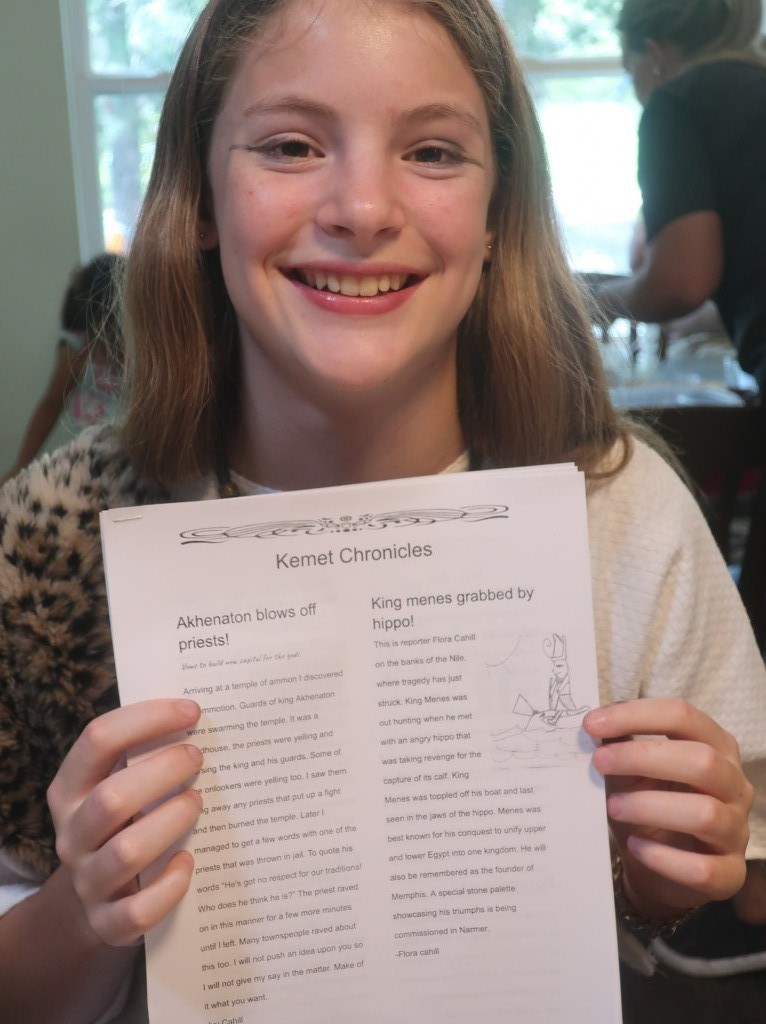 Kemet Chronicles
Akhenaton blows off
priests!
Vows to build new capital for this gods
Arriving at a temple of ammon I discovered
mmotion. Guards of king Akhenaton
were swarming the temple. It was a
dhouse, the priests were yelling and
sing the king and his guards. Some of
onlookers were yelling too. I saw them
ag away any priests that put up a fight
and then burned the temple. Later I
managed to get a few words with one of the
priests that was thrown in jail. To quote his
words "He's got no respect for our traditions!
Who does he think he is?" The priest raved
on in this manner for a few more minutes
until I left. Many townspeople raved about
this too. I will not push an idea upon you so
I will not give my say in the matter. Make of
it what you want.
Cahill
King menes grabbed by
hippo!
This is reporter Flora Cahill
on the banks of the Nile,
where tragedy has just
struck. King Menes was
out hunting when he met
with an angry hippo that
was taking revenge for the
capture of its calf. King
Menes was toppled off his boat and last
seen in the jaws of the hippo. Menes was
best known for his conquest to unify upper
and lower Egypt into one kingdom. He will
also be remembered as the founder of
Memphis. A special stone palette
showcasing his triumphs is being
commissioned in Narmer.
-Flora cahill